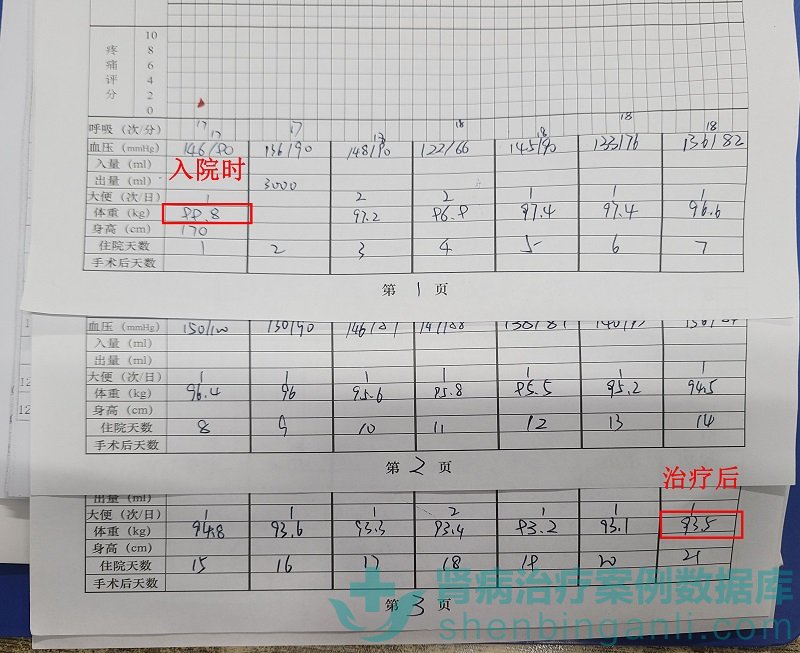 疼痛评分
10
8
6
4
2
0
呼吸（次/分） 17 17 17 18 18 18 18
血压（mmHg） 146/90 136/90 148/90 122/66 145/90 133/76 136/82
入量（ml）
入院时
出量（ml） 3000
大便（次/日） 1 2 2 1 1 1
体重（kg） 98.8 97.2 96.8 97.4 97.4 96.6
身高（cm） 170
住院天数 1 2 3 4 5 6 7
手术后天数
第 1 页
血压（mmHg） 150/100 130/90
入量（ml）
出量（ml）
大便（次/日） 1 1 1 1 1 1 1
体重（kg） 96.4 96 95.6 95.8 95.5 95.2 94.5
身高（cm）
住院天数 8 9 10 11 12 13 14
手术后天数
第 2 页
治疗后
出量（ml）
大便（次/日） 1 1 1 2 1 1 1
体重（kg） 94.8 93.6 93.3 93.4 93.2 93.1 93.5
身高（cm）
住院天数 15 16 17 18 19 20 21
手术后天数
第 3 页
肾病治疗案例数据库
shenbinganli.com